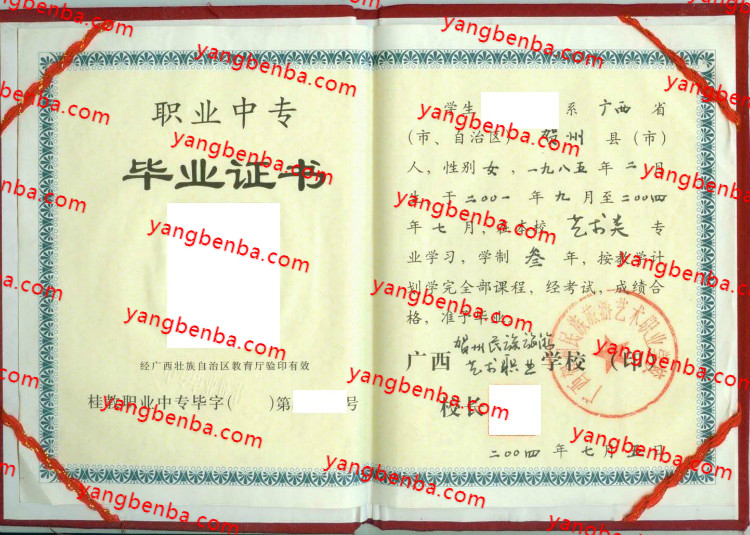 职业中专
毕业证书
经广西壮族自治区教育厅验印有效
桂教职业中专毕字( )第 号
学生 系 广西 省
(市、自治区) 贺州 县(市)
人，性别 女，一九八五年二月
生，于二〇〇一年九月至二〇〇四
年七月，在本校 艺术类 专
业学习，学制 叁 年，按教学计
划学完全部课程，经考试，成绩合
格，准予毕业。
广西 贺州民族旅游艺术职业 学校（印）
校长
二〇〇四年七月五日
yangbenba.com